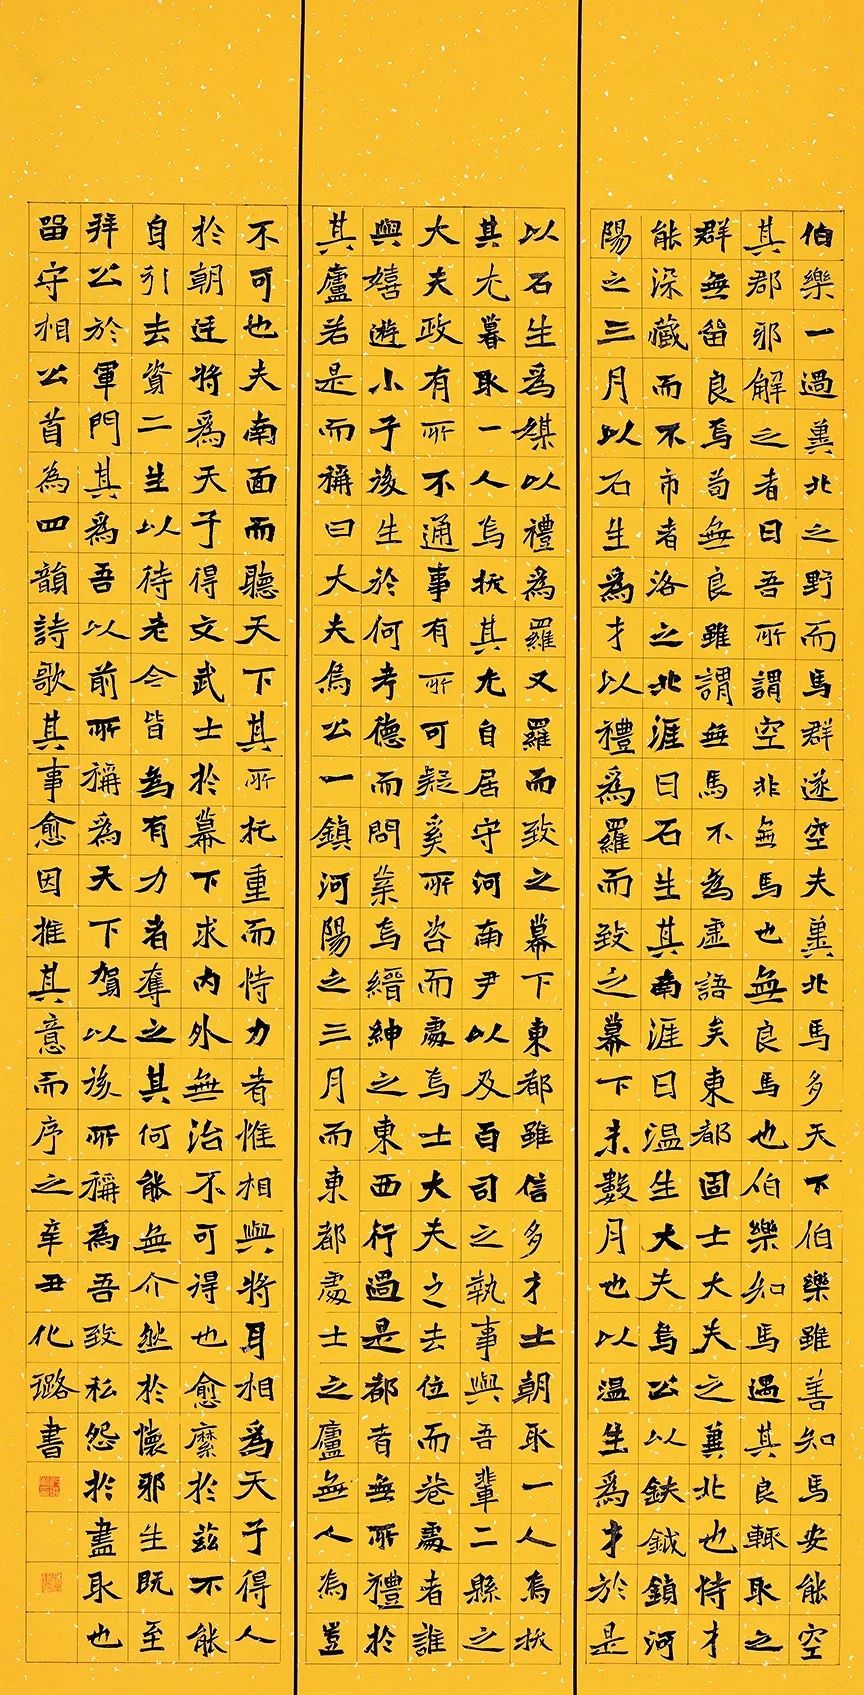 伯樂一過冀北之野而馬群遂空夫冀北馬多天下伯樂雖善知馬安能空
其郡邪解之者曰吾所謂空非無馬也無良馬也伯樂知馬遇其良輒取之
群無留良焉苟無良雖謂無馬不為虛語矣東都固士大夫之冀北也恃才
能深藏而不市者洛之北涯曰石生其南涯曰温生大夫烏公以鈇鉞鎮河
陽之三月以石生爲才以禮爲羅而致之幕下未數月也以温生爲才於是
以石生爲媒以禮爲羅又羅而致之幕下東都雖信多才士朝取一人焉拔
其尤暮取一人焉拔其尤自居守河南尹以及百司之執事與吾輩二縣之
大夫政有所不通事有所可疑奚所咨而處焉士大夫之去位而巷處者誰
與嬉遊小子後生於何考德而問業焉縉紳之東西行過是都者無所禮於
其廬若是而稱曰大夫烏公一鎮河陽之三月而東都處士之廬無人為豈
不可也夫南面而聽天下其所托重而恃力者惟相與將耳相爲天子得人
於朝廷將爲天子得文武士於幕下求内外無治不可得也愈縻於兹不能
自引去資二生以待老今皆為有力者奪之其何能無介然於懷邪生既至
拜公於軍門其爲吾以前所稱為天下賀以後所稱為吾致私怨於盡取也
留守相公首為四韻詩歌其事愈因推其意而序之辛丑化璐書